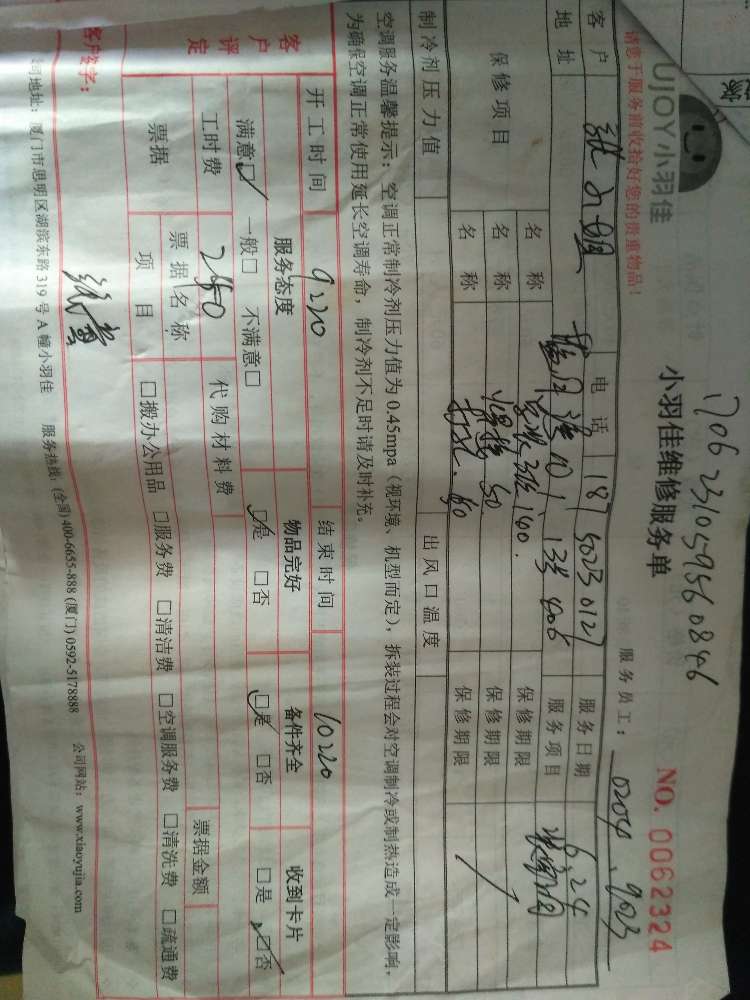 170623105956 0846
UJOY小羽佳
小羽佳维修服务单
NO. 0062324
请您于服务前收拾好您的贵重物品!
服务员工: 0204. 9023
客户 电话 187 5023 0127 服务日期 6.24
地址 13号 406 服务项目
保修项目 名称 140. 保修期限
名称 50 保修期限
名称 打孔. 50 保修期限
制冷剂压力值 出风口温度
空调服务温馨提示: 空调正常制冷剂压力值为 0.45mpa (视环境、机型而定), 拆装过程会对空调制冷或制热造成一定影响,
为确保空调正常使用延长空调寿命, 制冷剂不足时请及时补充。
开工时间 9:20 结束时间 10:20
客户评定 服务态度 物品完好 备件齐全 收到卡片
满意☑ 一般□ 不满意□ ☑是 □否 ☑是 □否 □是 ☑否
工时费 240 代购材料费
票据 票据名称 票据金额
项目 □搬办公用品 □服务费 □清洁费 □空调服务费 □清洗费 □疏通费
客户签字:
司地址: 厦门市思明区湖滨东路 319 号 A 幢小羽佳 服务热线: (全国) 400-6655-888 (厦门) 0592-5178888 公司网站: www.xiaoyujia.com